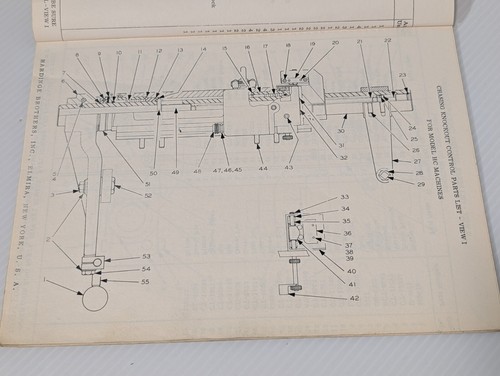 CHASING KNOCKOUT CONTROL PARTS LIST - VIEW I
FOR MODEL HC MACHINES
HARDINGE BROTHERS, INC., ELMIRA, NEW YORK, U. S. A.
7 8 9 10 11 12 13 14 15 16 17 18 19 20 21 22 23
24
25
26
27
28
29
30
31
32
43
44
47, 46, 45
48
49
50
51
52
3
2
1
53
54
55
33
34
35
36
37
38
39
40
41
42